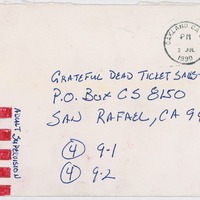 OAKLAND CA
PM
2 JUL
1990
GRATEFUL DEAD TICKET SALES
P.O. BOX CS 8150
SAN RAFAEL, CA 99
④ 9-1
④ 9-2
ADULT SUPERVISION